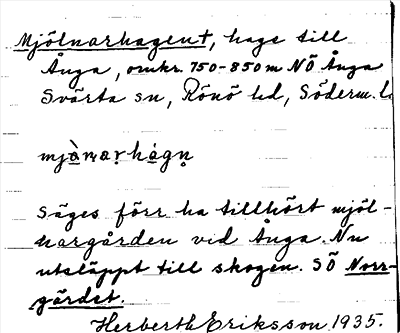 Mjölnarhagent, hage till
Ånga, omkr. 750-850 m NÖ Ånga
Svärta sn, Rönö hd, Söderm. l
mjànarhágn
Säges förr ha tillhört mjöl-
nargården vid Ånga. Nu
utsläppt till skogen. SÖ Norr-
gärdet.
Herberth Eriksson 1935.